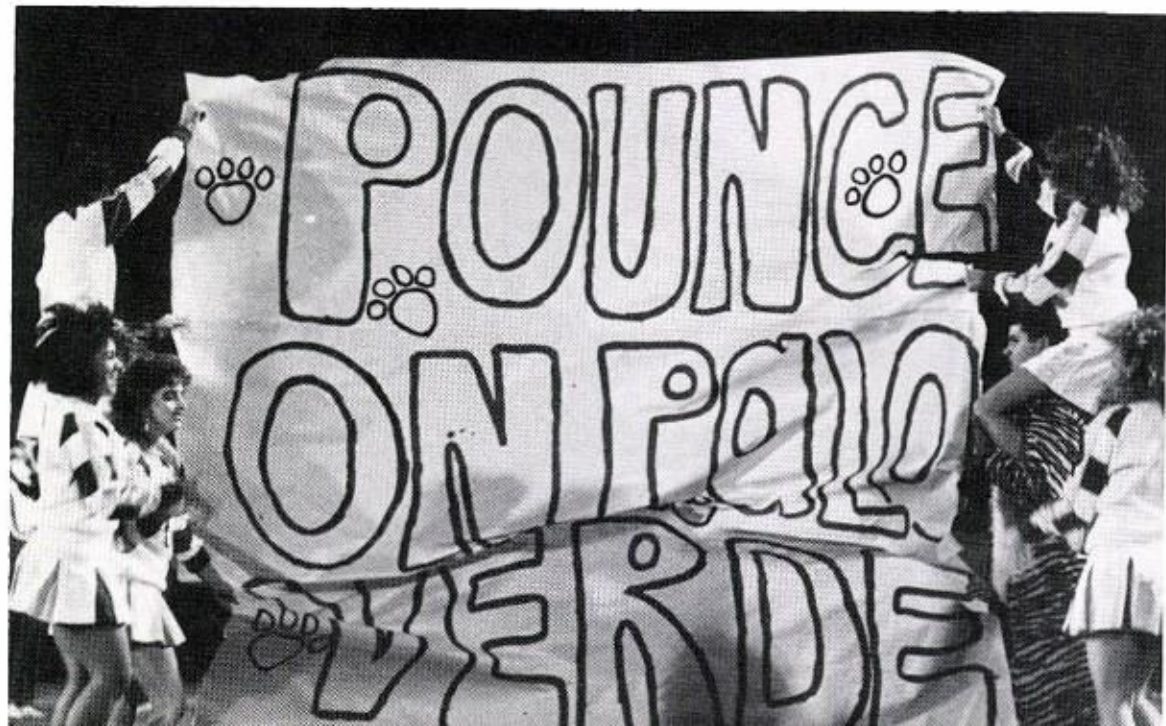 POUNCE
ON PalO
VERDE